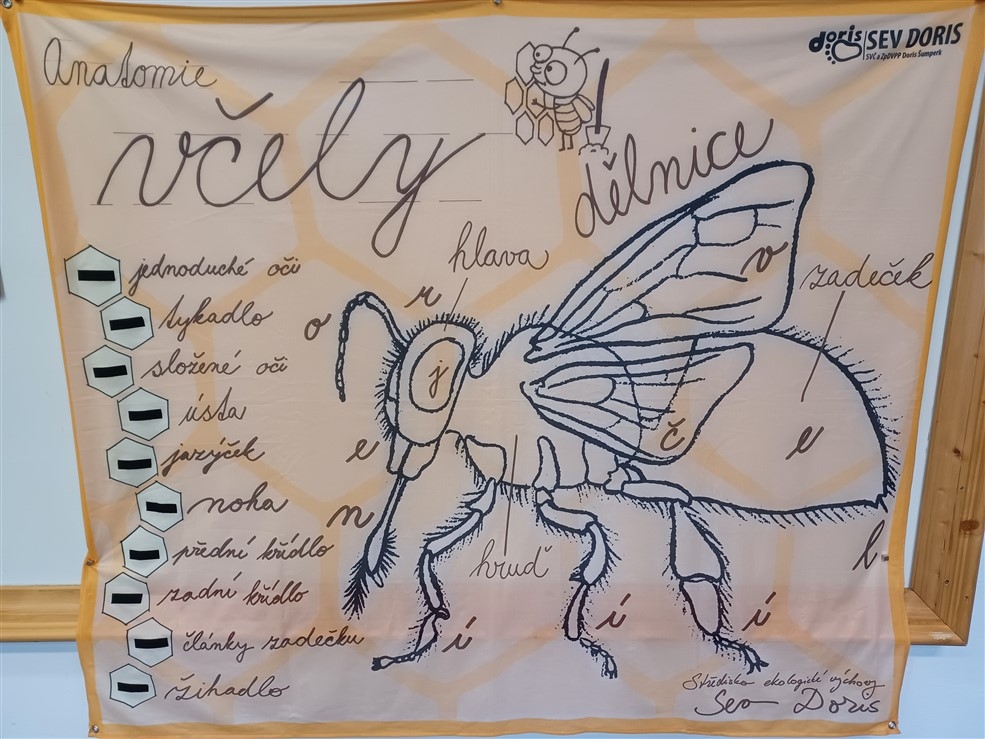 Anatomie
doris SEV DORIS
SVČ a ZpDVPP Doris Šumperk
včely
dělnice
hlava
zadeček
jednoduché oči
tykadlo
složené oči
ústa
jazýček
noha
přední křídlo
zadní křídlo
články zadečku
žihadlo
r
o
v
j
č
e
e
n
l
hruď
í
í
í
Středisko ekologické výchovy
Sev Doris